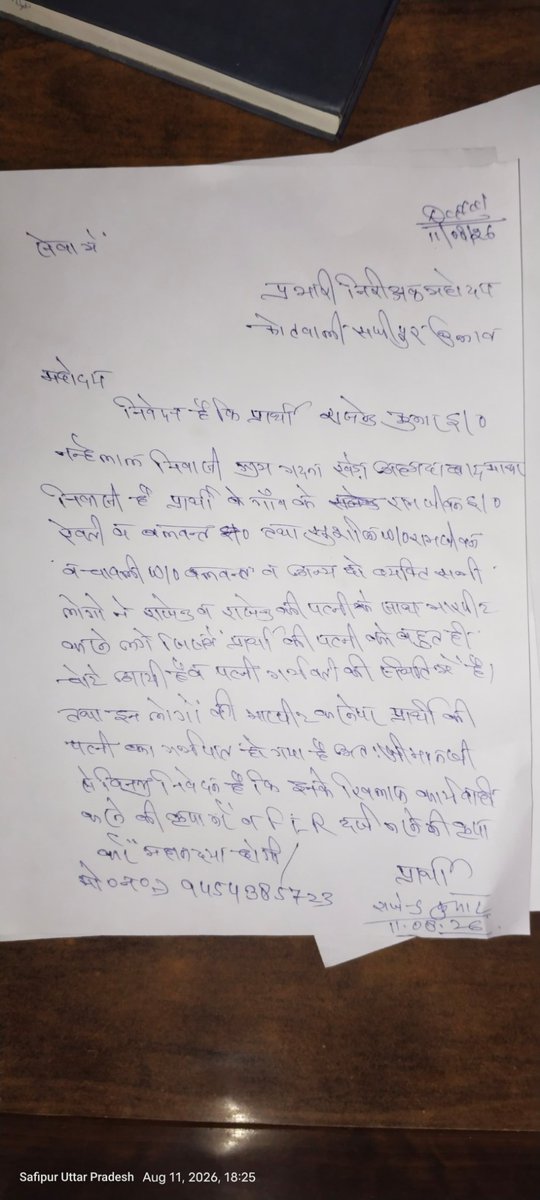 11/08/26
सेवा में
प्रभारी निरीक्षक महोदय
कोतवाली सफीपुर उन्नाव
महोदय
निवेदन है कि प्रार्थी राजेन्द्र कुमार S/0
नन्हेलाल निवासी ग्राम
निवासी है प्रार्थी के गाँव के S/0
व बलवन्त तथा W/0
व W/0 बलवन्त व अन्य दो व्यक्ति सभी
लोगो ने राजेन्द्र व राजेन्द्र की पत्नी के साथ मारपीट
करने लगे जिससे प्रार्थी की पत्नी को बहुत ही
चोटे आयी हैं व पत्नी गर्भवती की स्थिति में है।
तथा इन लोगों की मारपीट करने पर प्रार्थी की
पत्नी का गर्भपात हो गया है अतः श्रीमान जी
से विनम्र निवेदन है कि इनके खिलाफ कार्यवाही
करने की कृपा करें व FIR दर्ज करने की कृपा
करें महान दया होगी
मो0न0 9454385723
प्रार्थी
राजेन्द्र कुमार
11.08.26
Safipur Uttar Pradesh Aug 11, 2026, 18:25